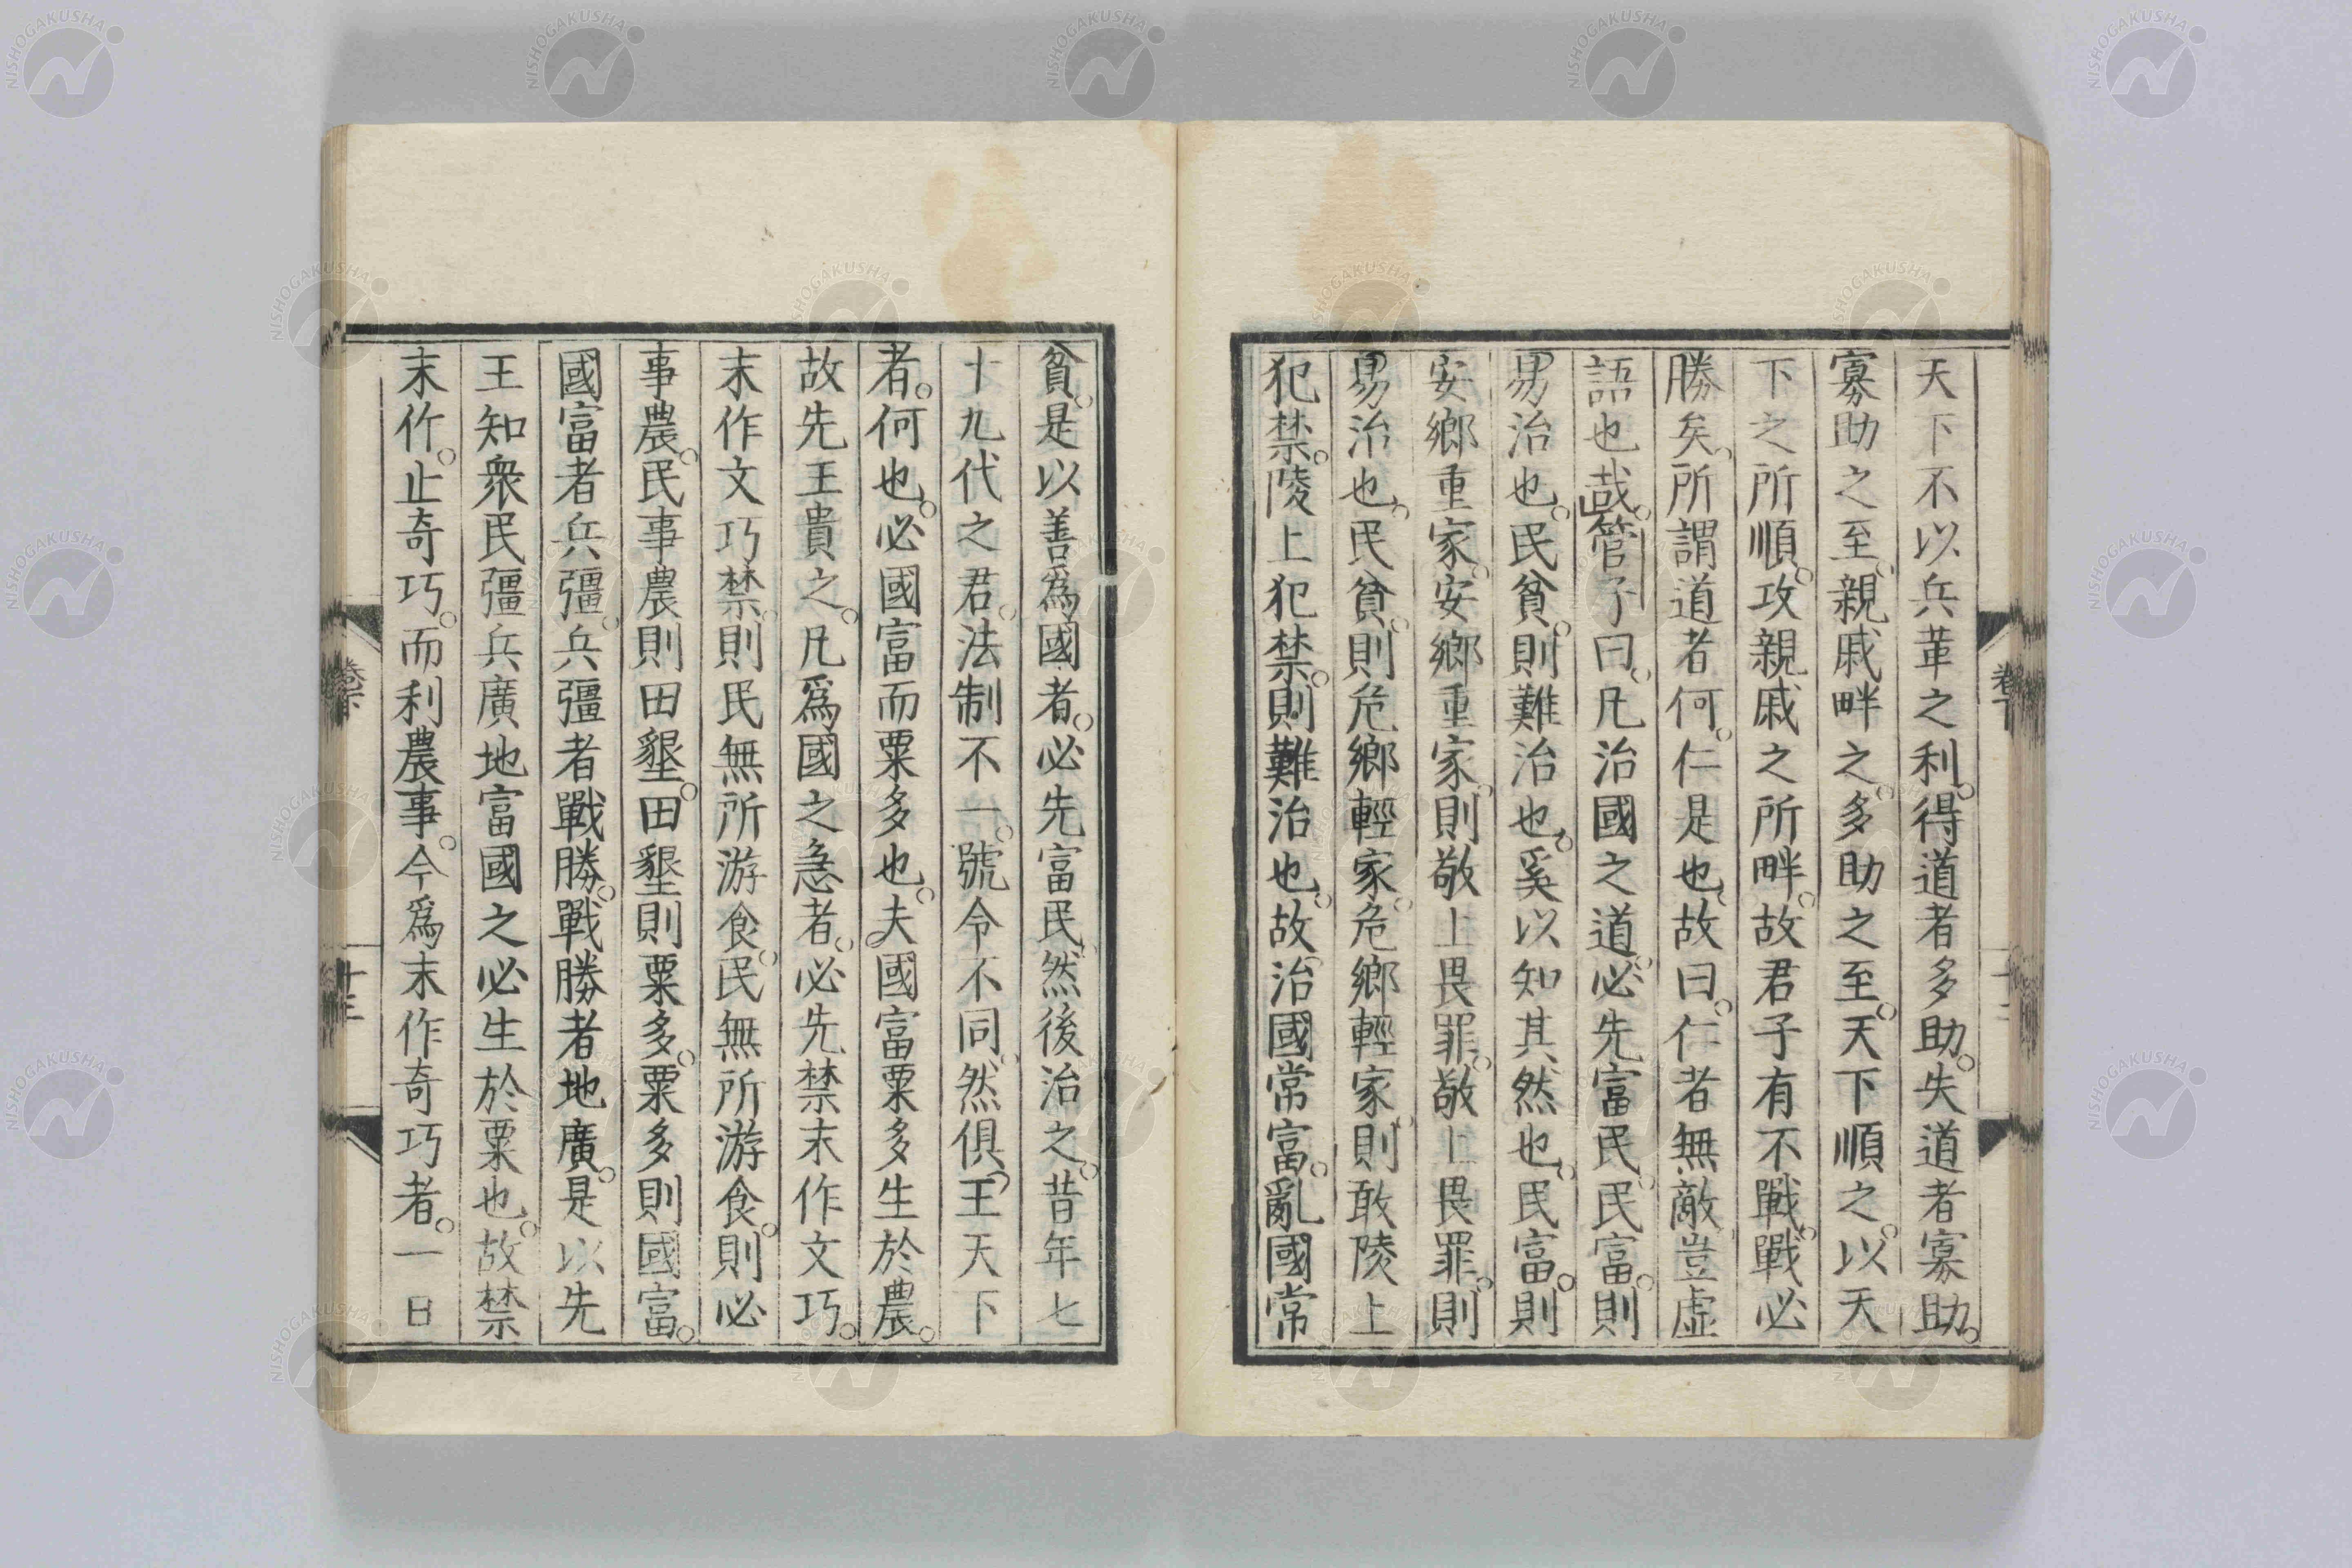 天下不以兵革之利。得道者多助。失道者寡助。
寡助之至。親戚畔之。多助之至。天下順之。以天
下之所順。攻親戚之所畔。故君子有不戰。戰必
勝矣。所謂道者何。仁是也。故曰。仁者無敵。豈虛
語也哉。管子曰。凡治國之道。必先富民。民富。則
易治也。民貧。則難治也。奚以知其然也。民富。則
安鄉重家。安鄉重家。則敬上畏罪。敬上畏罪。則
易治也。民貧。則危鄉輕家。危鄉輕家。則敢陵上
犯禁。陵上犯禁。則難治也。故治國常富。亂國常
卷下
貧。是以善爲國者。必先富民。然後治之。昔年七
十九代之君。法制不一。號令不同。然俱王天下
者。何也。必國富而粟多也。夫國富粟多生於農。
故先王貴之。凡爲國之急者。必先禁末作文巧。
末作文巧禁。則民無所游食。民無所游食。則必
事農。民事農則田墾。田墾則粟多。粟多則國富。
國富者兵彊。兵彊者戰勝。戰勝者地廣。是以先
王知衆民彊兵廣地富國之必生於粟也。故禁
末作。止奇巧。而利農事。今爲末作奇巧者。一日
卷下
十三
NISHOGAKUSHA